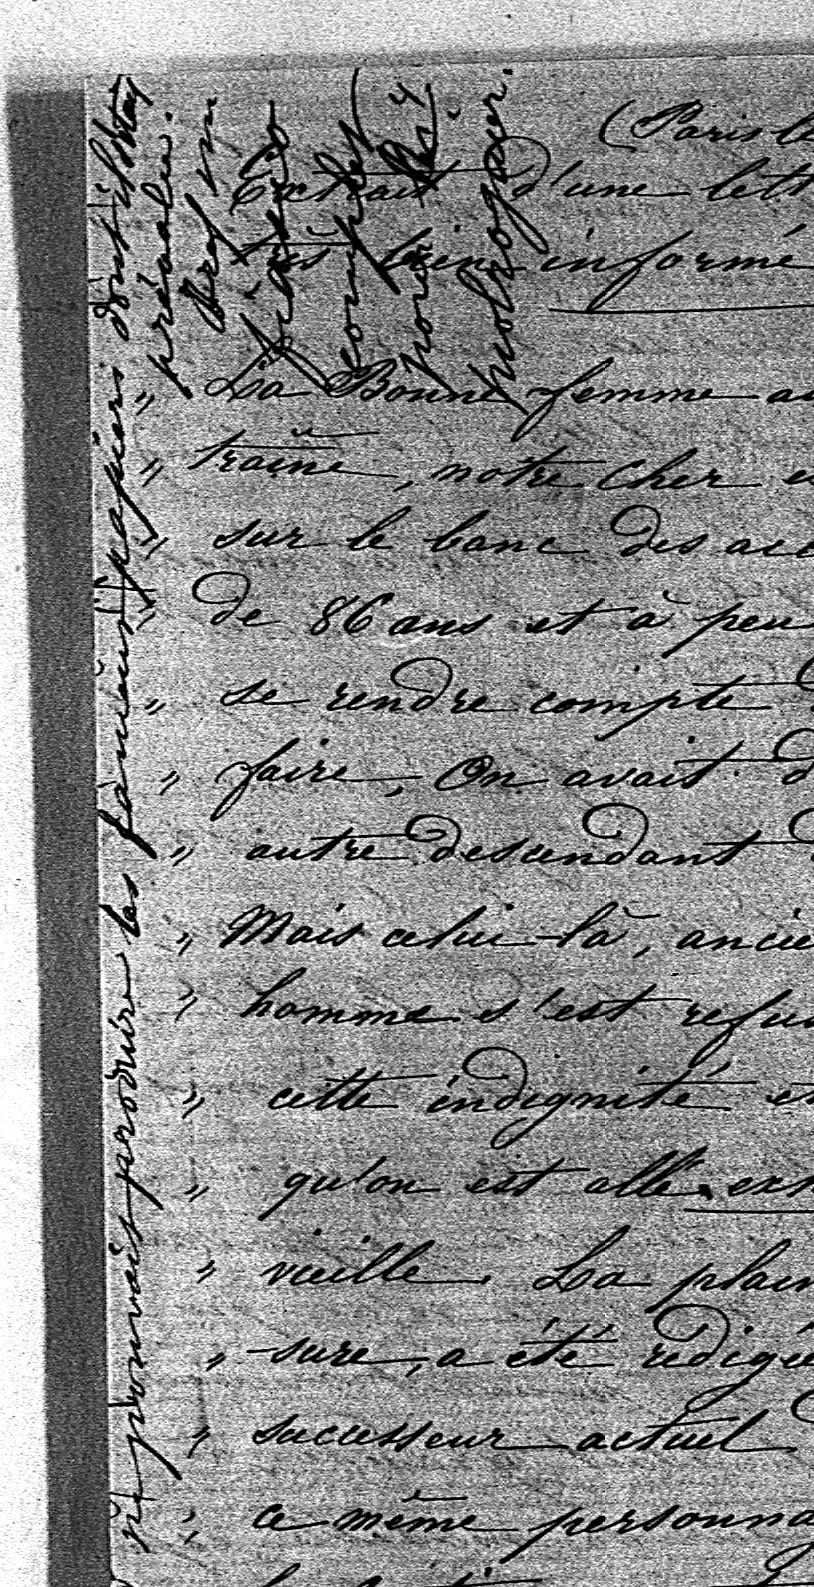 (Paris le
Extrait d'une lett
très bien informé
" La Bonne femme au
" traîné, notre cher e
" sur le banc des acc
" de 86 ans et à peu
" se rendre compte d
" faire, On avait d
" autre descendant d
" Mais celui-là, ancie
" homme s'est refus
" cette indignité et
" qu'on est allé ex
" vieille. La plain
" sure, a été rédigée
" successeur actuel d
" ce même personna
ne pouvait produire les fameux papiers dont il était
prévalu.
Bref un
fiasco
complet
pour